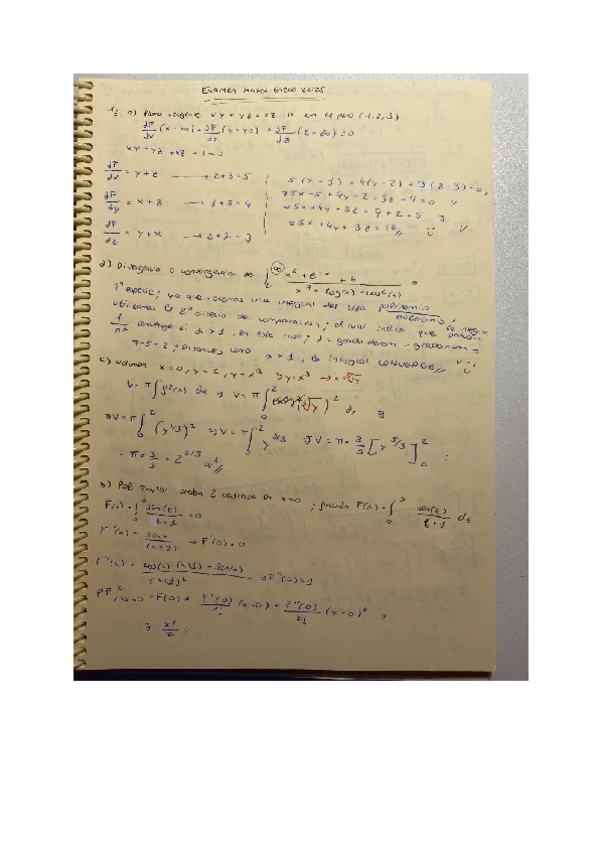 EXAMEN MATES
1) a) Plano tangente xy + yz + xz = 11 en el punto (1,2,3)
∂F/∂x (x-x0) + ∂F/∂y (y-y0) + ∂F/∂z (z-z0) = 0
xy + yz + xz - 11 = 0
∂F/∂x = y+z → 2+3=5
∂F/∂y = x+z → 1+3=4
∂F/∂z = y+x → 2+1=3
5(x-1) + 4(y-2) + 3(z-3) = 0
5x + 4y + 3z
d) Divergencia o convergencia de
1ª especie; ya que tenemos una integral del tipo polinomio / polinomio,
utilizamos el 2º criterio de comparación, el cual indica que
converge si α > 1. En este caso; α = grado denom - grado num =
7-5=2; entonces como α > 1, la integral CONVERGE
c) Volumen x=0, y=2, y=x³
V = π ∫ f²(x) dx V = π ∫₀² (∛y)² dy
V = π ∫₀² (y^1/3)² ⇒ V = π ∫₀² y^2/3 ⇒ V = π · 3/5 [y^5/3]₀²
= π · 3/5 · 2^5/3 u³
b) Pol Taylor orden 2 centrado en x=0; función F(x) = ∫₀ˣ sen(t)/(t+1) dt
F(x) = ∫₀ sen(t)/(t+1) = 0
F'(x) = sen x/(x+1) → F'(0) = 0
F''(x) = cos(x)·(x+1) - sen(x)/(x+1)² → F''(0) = 1
= F(0) + F'(0)/1! (x-0) + F''(0)/2! (x-0)²
x²/2